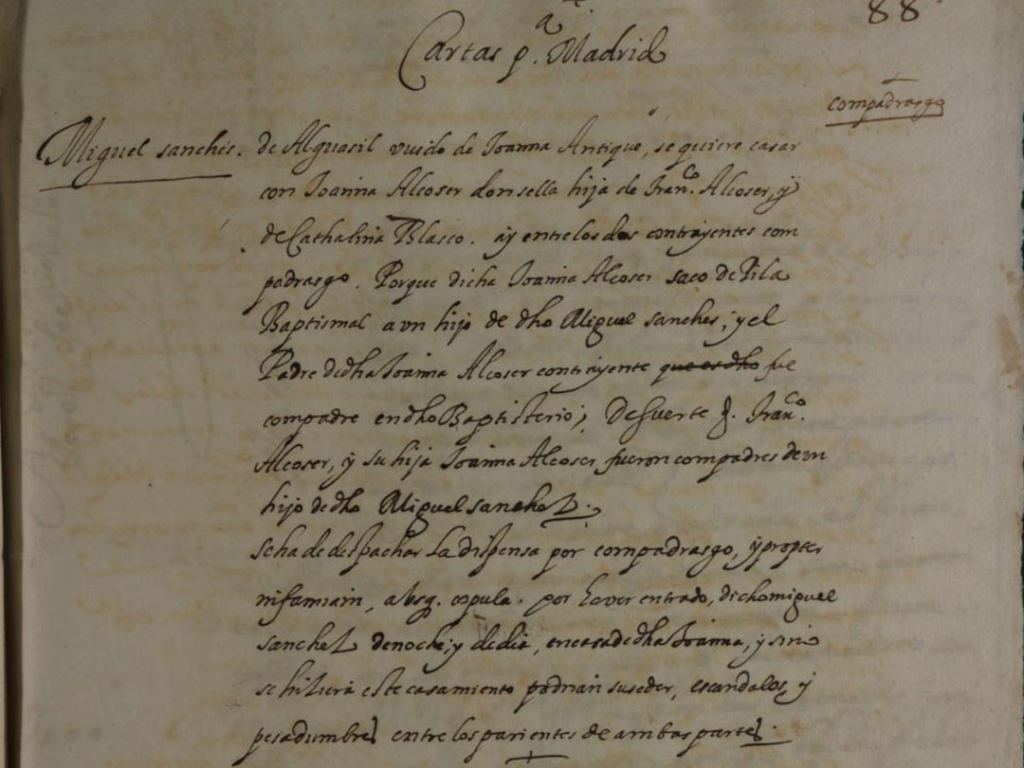 88
Cartas pª. Madrid
compadrasgo
Miguel sanches. de Alguasil viudo de Joanna Antique, se quiere casar
con Joanna Alcoser donsella hija de Franco. Alcoser, y
de Cathalina Blasco. ay entre los dos contrayentes com
padrasgo. Porque dicha Joanna Alcoser saco de Pila
Baptismal a un hijo de dho Miguel sanches; y el
Padre de dha Joanna Alcoser contrayente que es dho fue
compadre en dho Baptisterio; De suerte q. Franco.
Alcoser, y su hija Joanna Alcoser fueron compadres de un
hijo de dho Miguel sanchez.
Se ha de despachar La dispensa por compadrasgo, y propter
infamiam, absq. copula. por haver entrado, dicho miguel
sanchez de noche, y de dia, en casa de dha Joanna, y si no
se hiziera este casamiento podrian suseder, escandalos, y
pesadumbres entre los parientes de ambas partes.